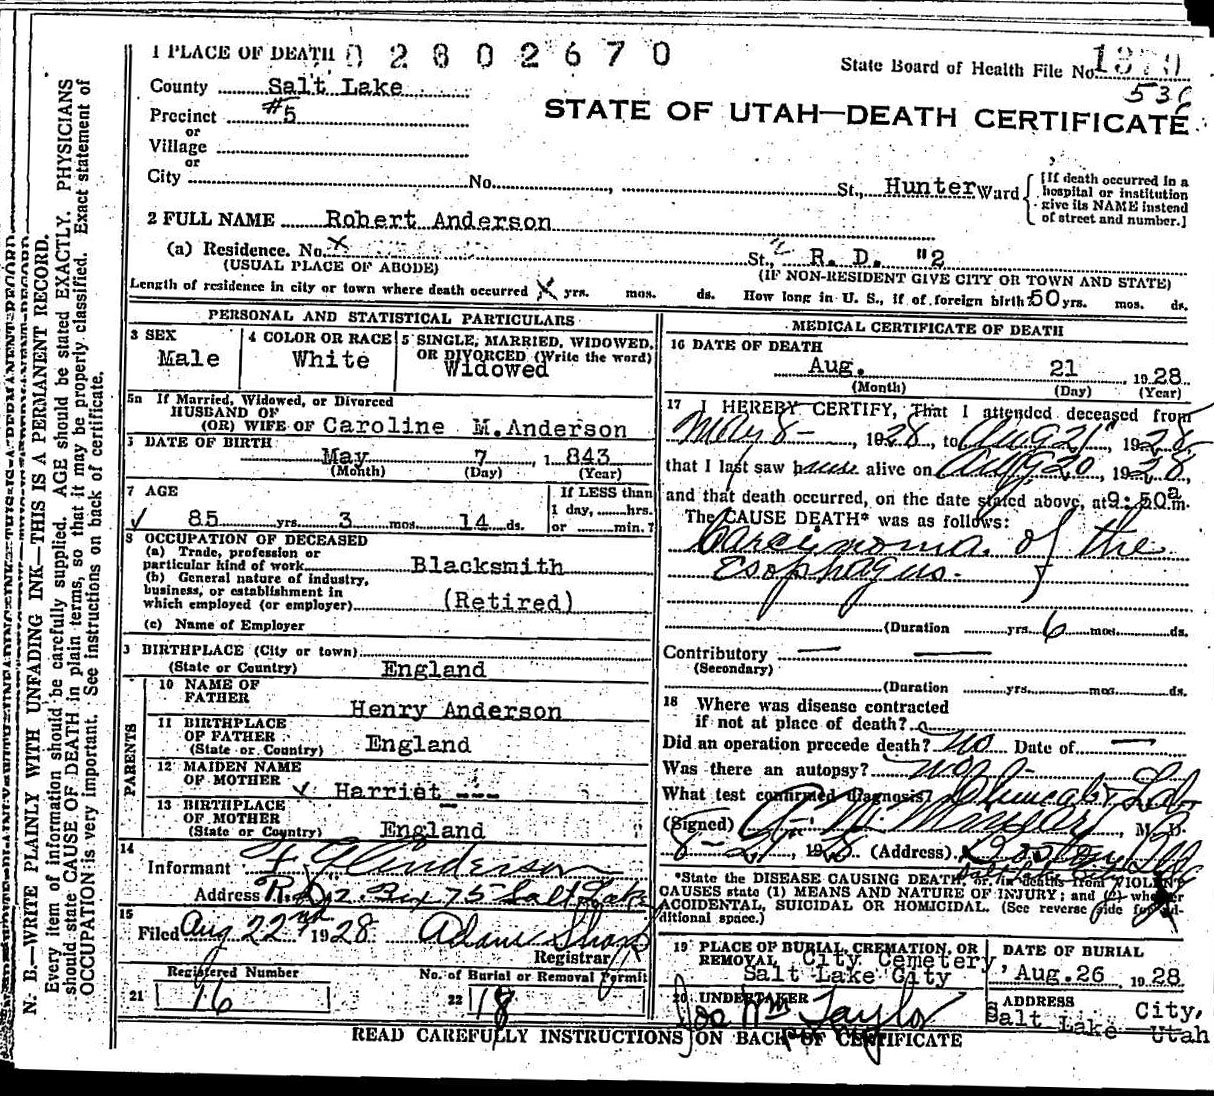 1 PLACE OF DEATH 0 2 8 0 2 6 7 0
State Board of Health File No.
County Salt Lake
536
Precinct #5
STATE OF UTAH—DEATH CERTIFICATE
or
Village
or
City No. , St., Hunter Ward
[If death occurred in a
hospital or institution
give its NAME instead
of street and number.]
2 FULL NAME Robert Anderson
(a) Residence. No. x St., R. D. #2
(USUAL PLACE OF ABODE) (IF NON-RESIDENT GIVE CITY OR TOWN AND STATE)
Length of residence in city or town where death occurred x yrs. mos. ds. How long in U. S., if of foreign birth? 50 yrs. mos. ds.
PERSONAL AND STATISTICAL PARTICULARS
3 SEX
Male
4 COLOR OR RACE
White
5 SINGLE, MARRIED, WIDOWED,
OR DIVORCED (Write the word)
Widowed
5a If Married, Widowed, or Divorced
HUSBAND OF
(OR) WIFE OF Caroline M. Anderson
6 DATE OF BIRTH
May 7, 1843
(Month) (Day) (Year)
7 AGE
85 yrs. 3 mos. 14 ds.
If LESS than
1 day, hrs.
or min.?
8 OCCUPATION OF DECEASED
(a) Trade, profession or
particular kind of work Blacksmith
(b) General nature of industry,
business, or establishment in
which employed (or employer) (Retired)
(c) Name of Employer
9 BIRTHPLACE (City or town)
(State or Country) England
PARENTS
10 NAME OF
FATHER Henry Anderson
11 BIRTHPLACE
OF FATHER
(State or Country) England
12 MAIDEN NAME
OF MOTHER Harriet ---
13 BIRTHPLACE
OF MOTHER
(State or Country) England
14
Informant Anderson
Address R.D. 2. Box 75 Salt Lake
15
Filed Aug 22nd 1928 Adam Sharp
Registrar
Registered Number
21 16
No. of Burial or Removal Permit
22 18
MEDICAL CERTIFICATE OF DEATH
16 DATE OF DEATH
Aug. 21, 1928
(Month) (Day) (Year)
17 I HEREBY CERTIFY, That I attended deceased from
May 8-, 1928, to Aug 21, 1928
that I last saw h alive on Aug 20, 1928,
and that death occurred, on the date stated above, at 9:50 a m.
The CAUSE DEATH* was as follows:
Carcinoma of the
Esophagus.
(Duration yrs. 6 mos. ds.
Contributory — —
(Secondary)
(Duration yrs. mos. ds.
18 Where was disease contracted
if not at place of death?
Did an operation precede death? no Date of —
Was there an autopsy? no -
What test confirmed diagnosis? Lab
(Signed) , M. D.
8-21, 1928 (Address) Boston Bldg
*State the DISEASE CAUSING DEATH, or, in deaths from VIOLENT
CAUSES state (1) MEANS AND NATURE OF INJURY; and (2) whether
ACCIDENTAL, SUICIDAL OR HOMICIDAL. (See reverse side for ad-
ditional space.)
19 PLACE OF BURIAL, CREMATION, OR
REMOVAL City Cemetery
Salt Lake City
DATE OF BURIAL
Aug. 26, 1928
20 UNDERTAKER
Jos Wm Taylor
ADDRESS City,
Salt Lake Utah
READ CAREFULLY INSTRUCTIONS ON BACK OF CERTIFICATE
N. B.—WRITE PLAINLY WITH UNFADING INK—THIS IS A PERMANENT RECORD.
Every item of information should be carefully supplied. AGE should be stated EXACTLY. PHYSICIANS
should state CAUSE OF DEATH in plain terms, so that it may be properly classified. Exact statement of
OCCUPATION is very important. See instructions on back of certificate.